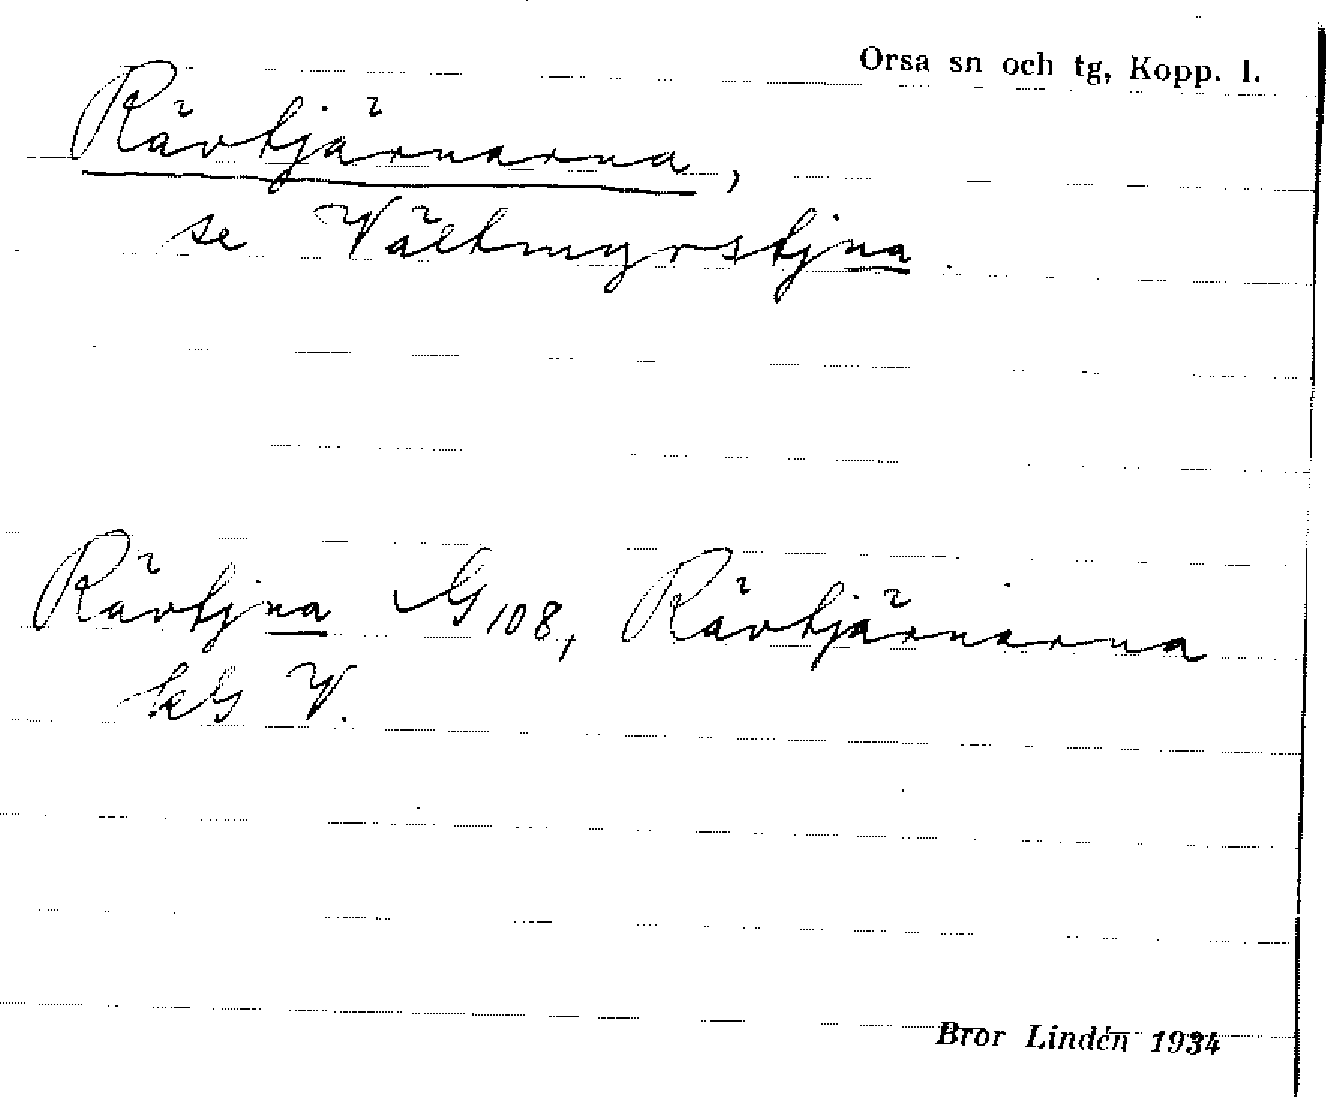 Orsa sn och tg, Kopp. l.
Rävtjärnarna,
se Vältmyrstjna.
Rävtjna G 108, Rävtjärnarna
V.
Bror Lindén 1934